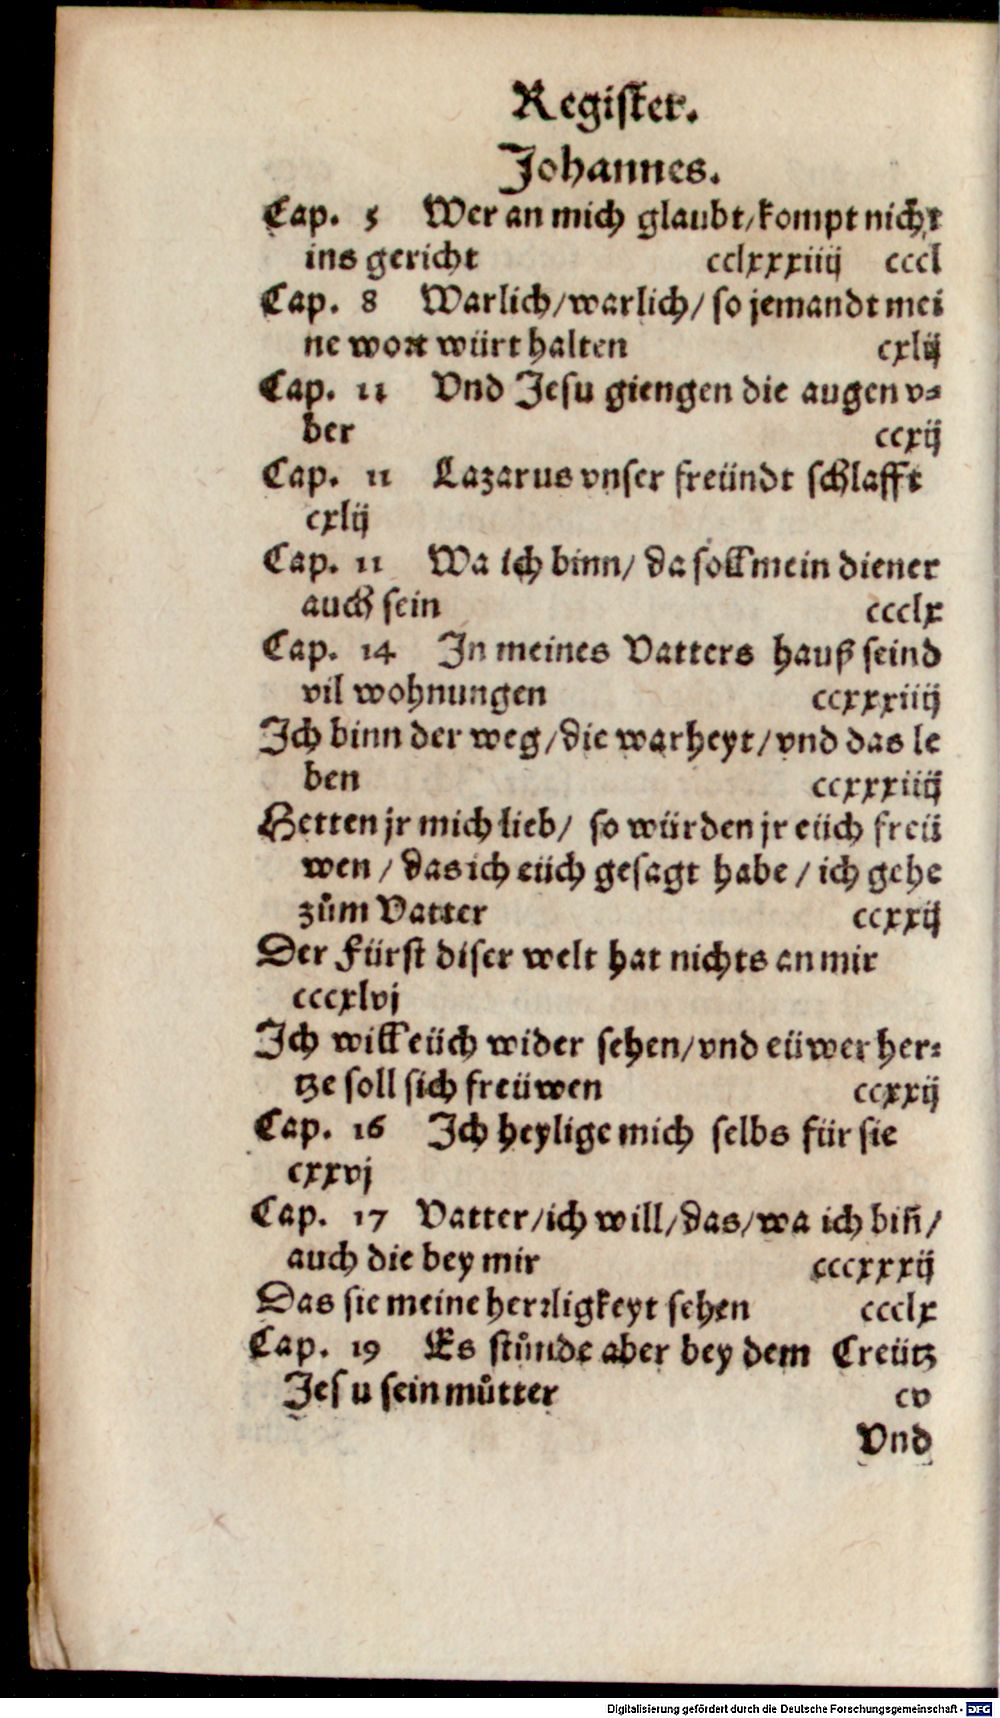 Register.
Johannes.
Cap. 5 Wer an mich glaubt/kompt nicht
ins gericht cclxxxiiij cccl
Cap. 8 Warlich/warlich/ so jemandt mei
ne wort würt halten cxlij
Cap. 11 Vnd Jesu giengen die augen v⸗
ber ccxij
Cap. 11 Lazarus vnser freündt schlafft
cxlij
Cap. 11 Wa ich binn/ da soll mein diener
auch sein ccclx
Cap. 14 In meines Vatters hauß seind
vil wohnungen ccxxxiiij
Ich binn der weg/die warheyt/vnd das le
ben ccxxxiiij
Hetten jr mich lieb/ so würden jr eüch freü
wen / das ich eüch gesagt habe / ich gehe
zům Vatter ccxxij
Der Fürst diser welt hat nichts an mir
cccxlvj
Ich will eüch wider sehen/vnd eüwer her⸗
tze soll sich freüwen ccxxij
Cap. 16 Ich heylige mich selbs für sie
cxxvj
Cap. 17 Vatter/ich will/das/wa ich biñ/
auch die bey mir cccxxxij
Das sie meine herꝛligkeyt sehen ccclx
Cap. 19 Es stůnde aber bey dem Creütz
Jesu sein můtter cv
Vnd
Digitalisierung gefördert durch die Deutsche Forschungsgemeinschaft - DFG